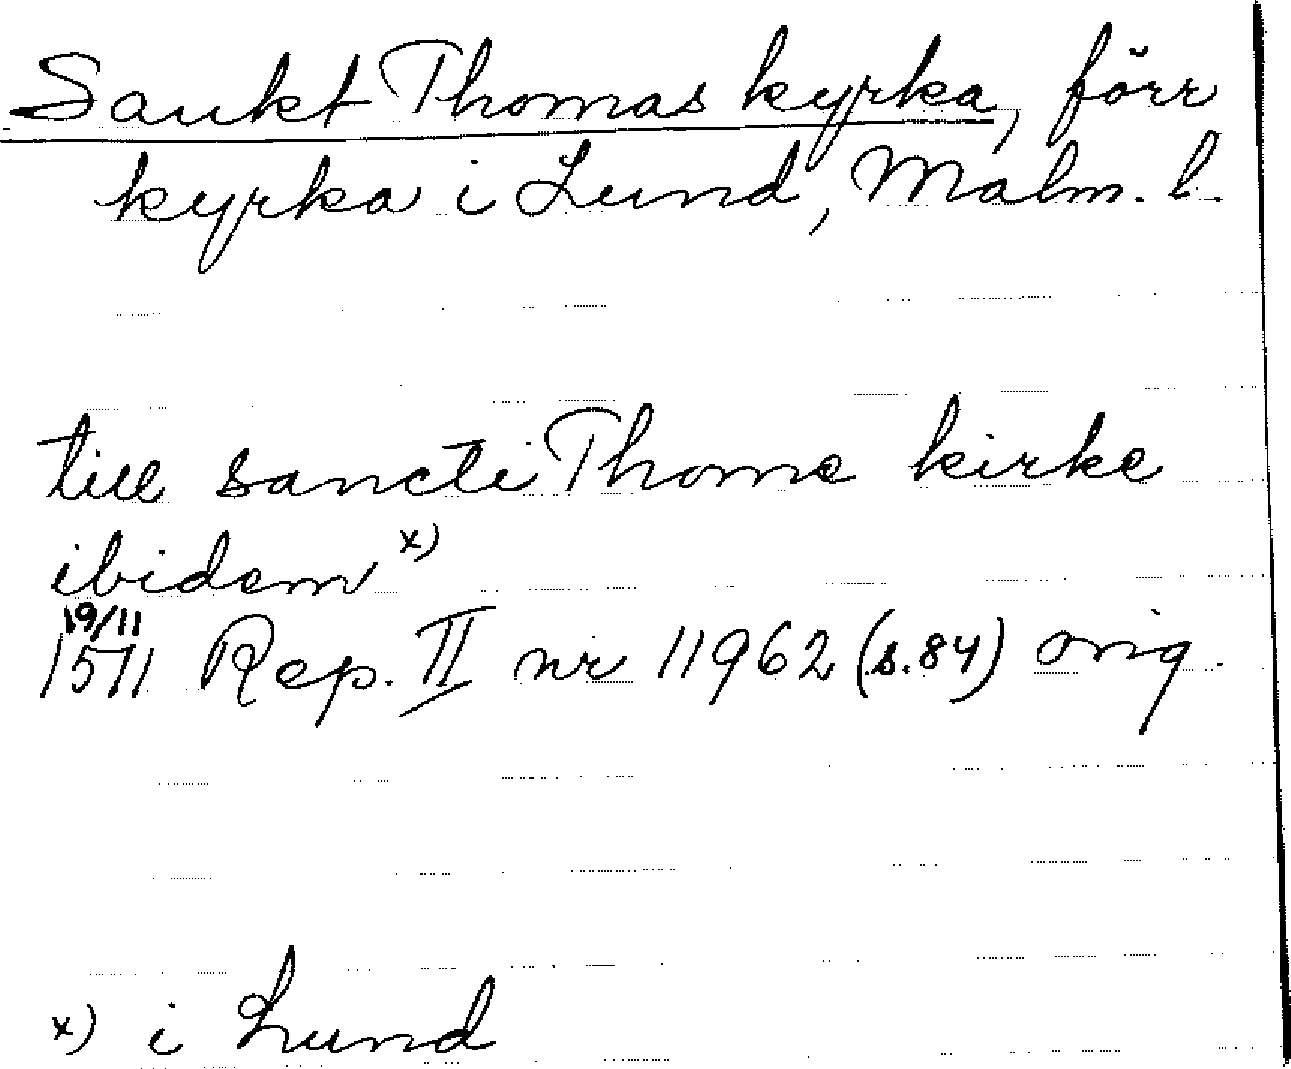 Sankt Thomas kyrka, förr
kyrka i Lund, Malm. l.
till sancti Thome kirke
ibidem x)
19/11
1511 Rep. II nr 11962 (s. 84) orig.
x) i Lund